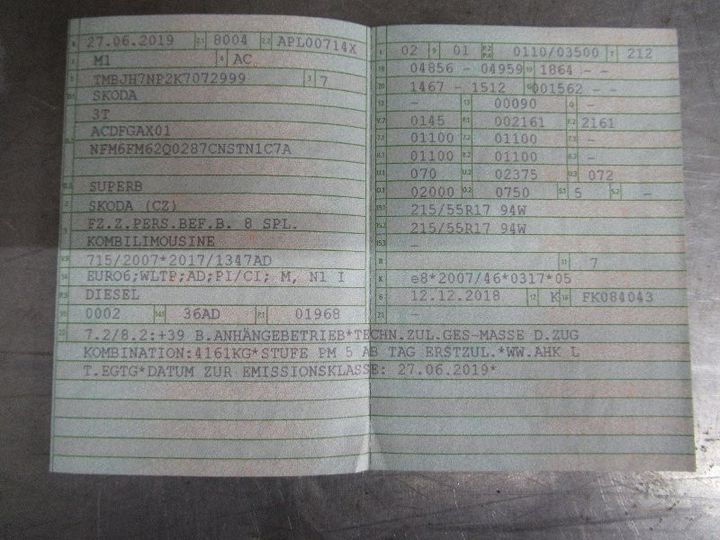 27.06.2019 2.1 8004 2.2 APL00714X
M1 4 AC
TMBJH7NP2K7072999 3 7
SKODA
3T
ACDFGAX01
NFM6FM62Q0287CNSTN1C7A
SUPERB
SKODA (CZ)
FZ.Z.PERS.BEF.B. 8 SPL.
KOMBILIMOUSINE
715/2007*2017/1347AD
EURO6;WLTP;AD;PI/CI; M, N1 I
DIESEL
0002 36AD 01968
02 9 01 0110/03500 T 212
04856 - 04959 1864 - -
1467 - 1512 001562 - -
- 13 00090 Q -
0145 002161 2161
01100 01100 -
01100 01100 -
070 02375 072
02000 O.2 0750 S.1 5 S.2 -
215/55R17 94W
215/55R17 94W
-
R 11 7
K e8*2007/46*0317*05
6 12.12.2018 17 K 16 FK084043
21 -
22 7.2/8.2:+39 B.ANHÄNGEBETRIEB*TECHN.ZUL.GES-MASSE D.ZUG
KOMBINATION:4161KG*STUFE PM 5 AB TAG ERSTZUL.*WW.AHK L
T.EGTG*DATUM ZUR EMISSIONSKLASSE: 27.06.2019*